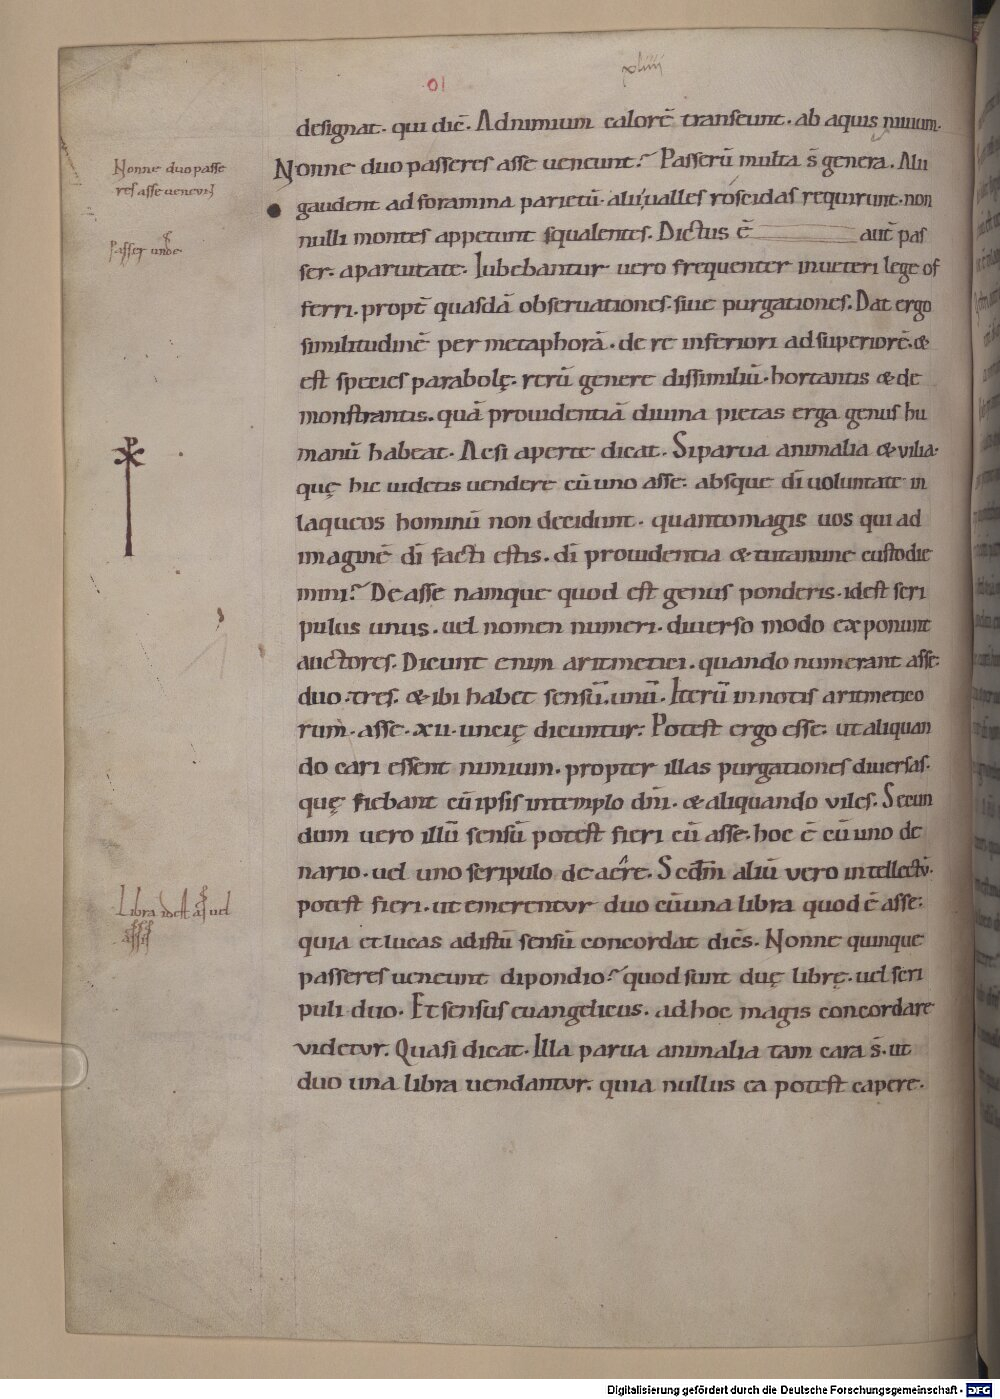 xliiii
designat. qui dic̄. Ad nimium calorē transeunt. ab aquis niuium.
Nonne duo passeres asse ueneunt? Passerū multa s̄ genera. Alii
gaudent ad foramina parietū. alii ualles roscidas requirunt. non
nulli montes appetunt squalentes. Dictus ē aut̄ pas
ser. a paruitate. Iubebantur uero frequenter in ueteri lege of
ferri. propt̄ quasdā obseruationes. siue purgationes. Dat ergo
similitudinē per metaphorā. de re inferiori ad superiorē. &
est species parabolę. rerū genere dissimiliū. hortantis & de
monstrantis. quā prouidentiā diuina pietas erga genus hu
manū habeat. Ac si aperte dicat. Si parua animalia & vilia.
quę hic uidetis uendere cū uno asse. absque dī uoluntate in
laqueos hominū non decidunt. quanto magis uos qui ad
imaginē dī facti estis. dī prouidentia & tutamine custodie
mini? De asse namque quod est genus ponderis. id est scri
pulus unus. uel nomen numeri. diuerso modo exponunt
auctores. Dicunt enim aritmetici. quando numerant asse.
duo. tres. & ibi habet sensū. unū. Iterū in notis aritmetico
rum. asse. xii. uncię dicuntur. Potest ergo esse. ut aliquan
do cari essent nimium. propter illas purgationes diuersas.
quę fiebant cū ipsis in templo dn̄i. & aliquando viles. Secun
dum uero illū sensū potest fieri cū asse. hoc ē cū uno de
nario. uel uno scripulo de aere. Scdm̄ aliū vero intellectū.
potest fieri. ut emerentur duo cū una libra quod ē asse.
quia et lucas ad istū sensū concordat dicēs. Nonne quinque
passeres ueneunt dipondio? quod sunt duę librę. uel scri
puli duo. Et sensus euangelicus. ad hoc magis concordare
videtur. Quasi dicat. Illa parua animalia tam cara s̄. ut
duo una libra uendantur. quia nullus ea potest capere.
Nonne duo passe
res asse ueneunt
Passer unde
Libra id est as uel
assis
Digitalisierung gefördert durch die Deutsche Forschungsgemeinschaft - DFG